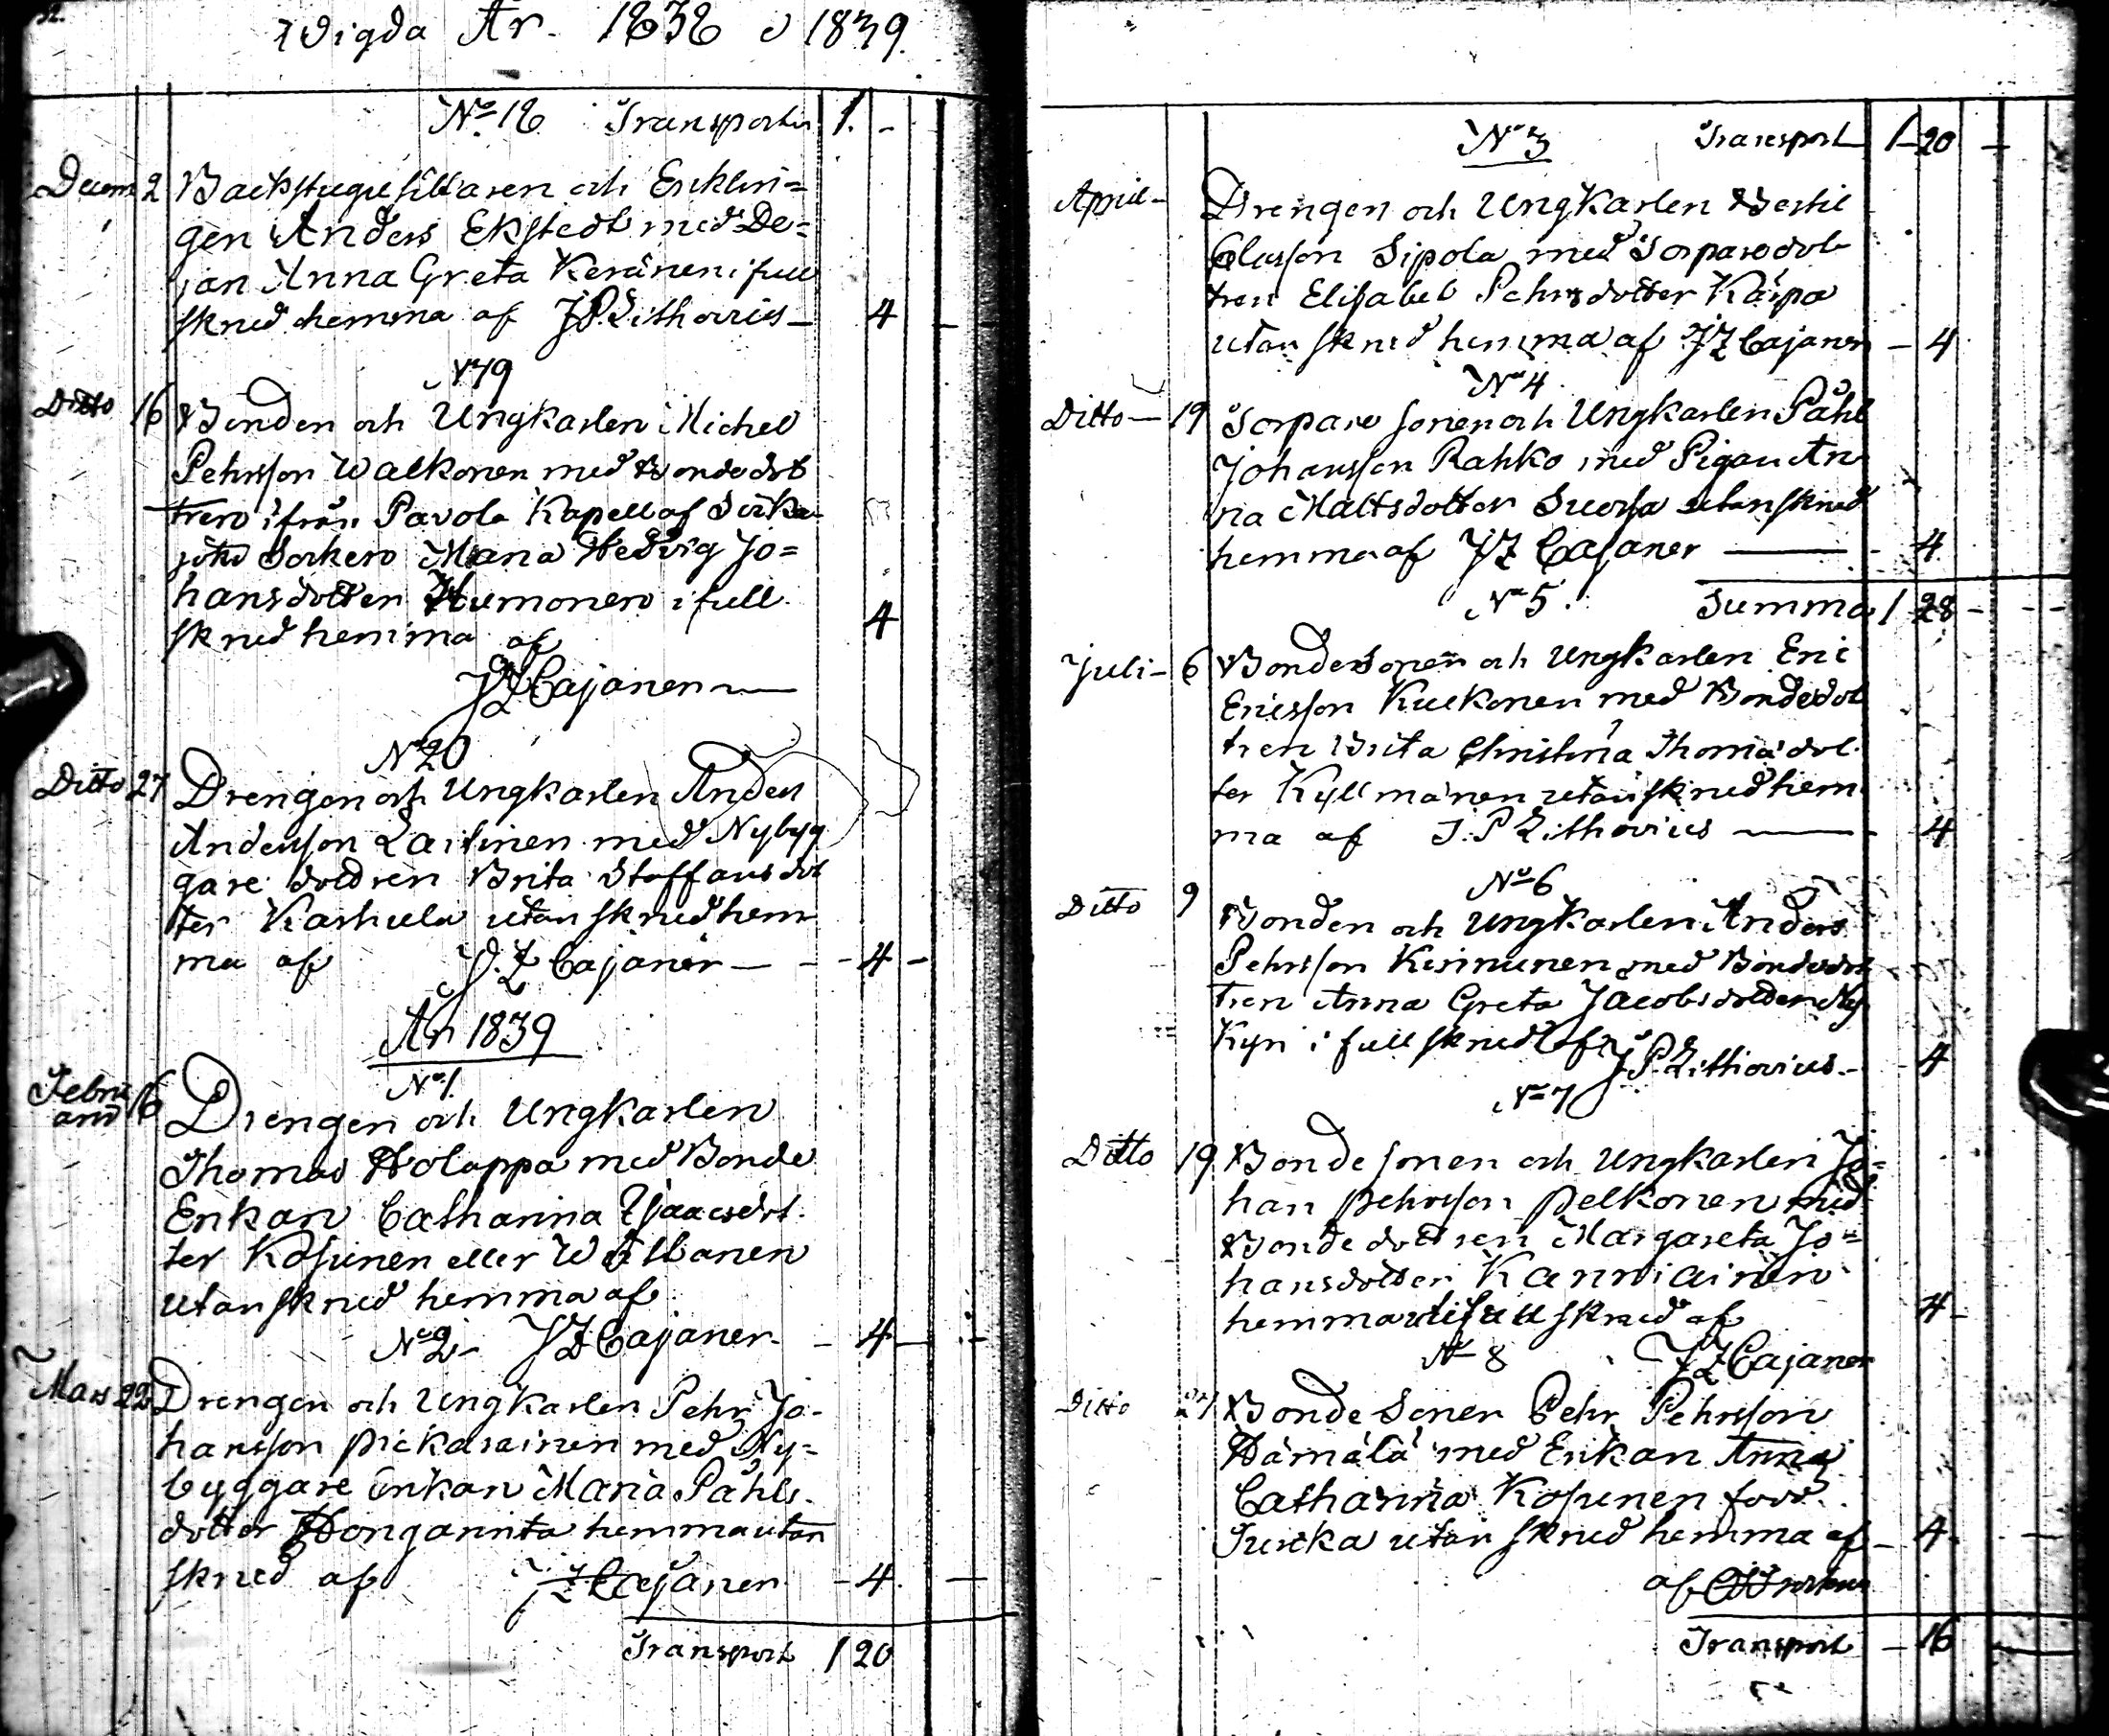 32.
Wigda År. 1838 o 1839.
No 18 Transporten 1. -
Decem 2 Backstugusittaren och Enklin=
gen Anders Ekstedt med De=
jan Anna Greta Keränen i full
skrud hemma af J P Lithovius — 4 —
No 19
Ditto 16 Bonden och Ungkarlen Michel
Pehrsson Walkonen med Bondedot
tren ifrån Pavola Kapell af Siika
joki Socken Maria Hedvig Jo=
hansdotter Humonen i full
skrud hemma af 4
J Z Cajaner —
No 20
Ditto 27 Drengen och Ungkarlen Anders
Andersson Lartinen med Nybyg
gare dottren Brita Staffansdot
ter Karhula utan skrud hem
ma af J. Z Cajaner — - - 4 -
År 1839
No 1.
Febru
arii 16 Drengen och Ungkarlen
Thomas Holappa med Bonde
Enkan Catharina Isaacsdot
ter Kosunen eller Vättanen
utan skrud hemma af
No 2 - J Z Cajaner - - 4 -
Mars 22 Drengen och Ungkarlen Pehr Jo-
hansson Pickarainen med Ny=
byggare Enkan Maria Påhls
dotter Honganita hemma utan
skrud af J Z Cajaner - 4. —
Transport 1 20
No 3 Transport 1 - 20 -
April - Drengen och Ungkarlen Bertil
Olusson Sipola med Torparedot
tren Elisabet Pehrsdotter Karpa
utan skrud hemma af J Z Cajaner - 4
No 4
Ditto — 19 Torpare sonen och Ungkarlen Påhl
Johansson Rahko med Pigan An
na Mattsdotter Suorsa utan skrud
hemma af J Z Cajaner — - 4
No 5. Summa 1 28 - - -
Juli - 6 Bondesonen och Ungkarlen Eric
Ericsson Kuckonen med Bondedot
tren Brita Christina Thomædot
ter Kyllmänen utan skrud hem
ma af J. P Lithovius — - 4
No 6
Ditto 9 Bonden och Ungkarlen Anders
Pehrsson Kinnunen med Bondedot
tren Anna Greta Jacobsdotter Ny
Kyri i full skrud af J P Lithovius - - 4
No 7
Ditto 19 Bondesonen och Ungkarlen Jo=
han Pehrsson Pelkonen med
Bonde dottren Margareta Jo=
hansdotter Kanniainen
hemma i full skrud af 4 -
No 8 J Z Cajaner
Ditto 27 Bonde Sonen Pehr Pehrsson
Hämälä med Enkan Anna
Catharina Kosunen född
Turcka utan skrud hemma af - 4 —
af
Transport - 16 —